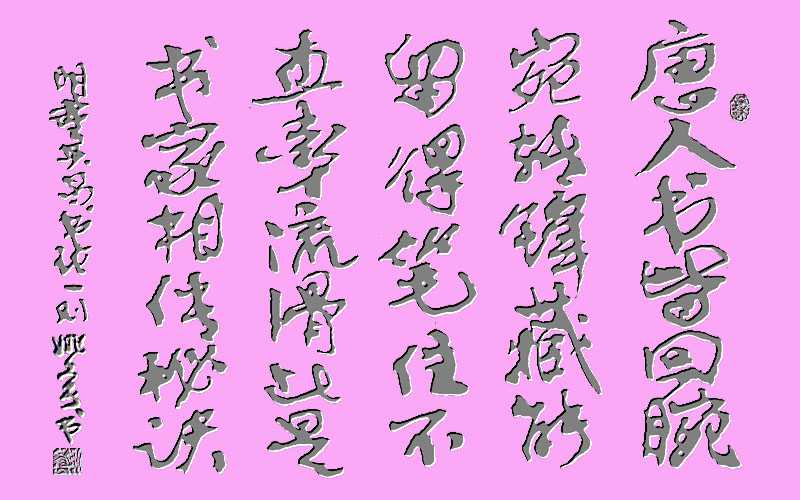 唐人书皆回腕
宛转锋藏能
留得笔住不
直率流滑此是
书家相传秘诀